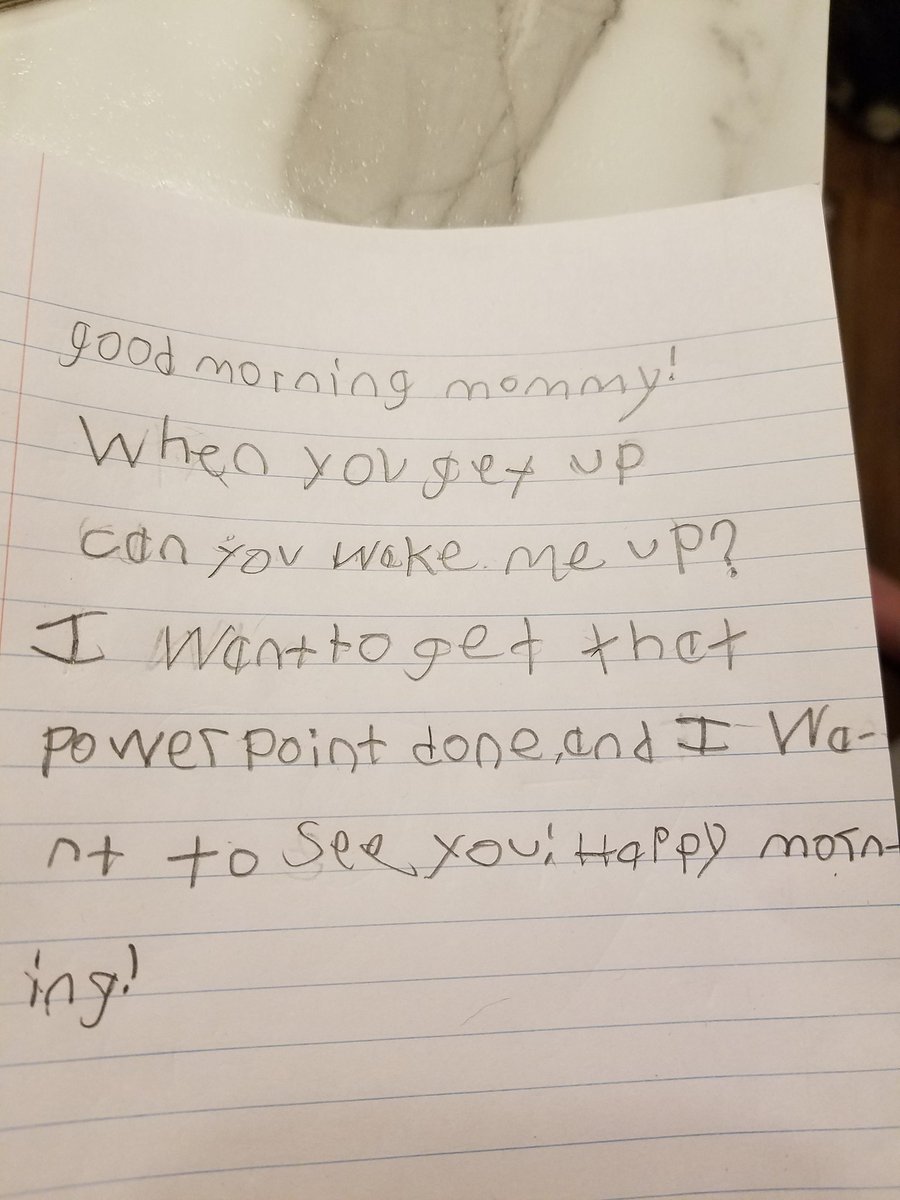 good morning mommy!
When you get up
can you wake me up?
I Want to get that
power point done, and I Wa-
nt to See you! Happy morn-
ing!